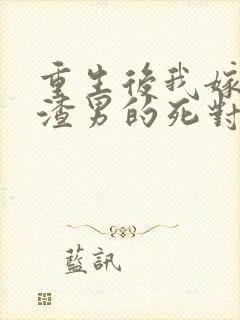 重生後我嫁
渣男的死對
藍訊